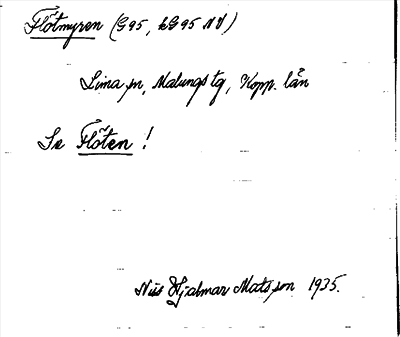 Flötmyren (G95, kG95 NV)
Lima sn, Malungs tg, Kopp. län
Se Flöten!
Nils Hjalmar Matsson 1935.